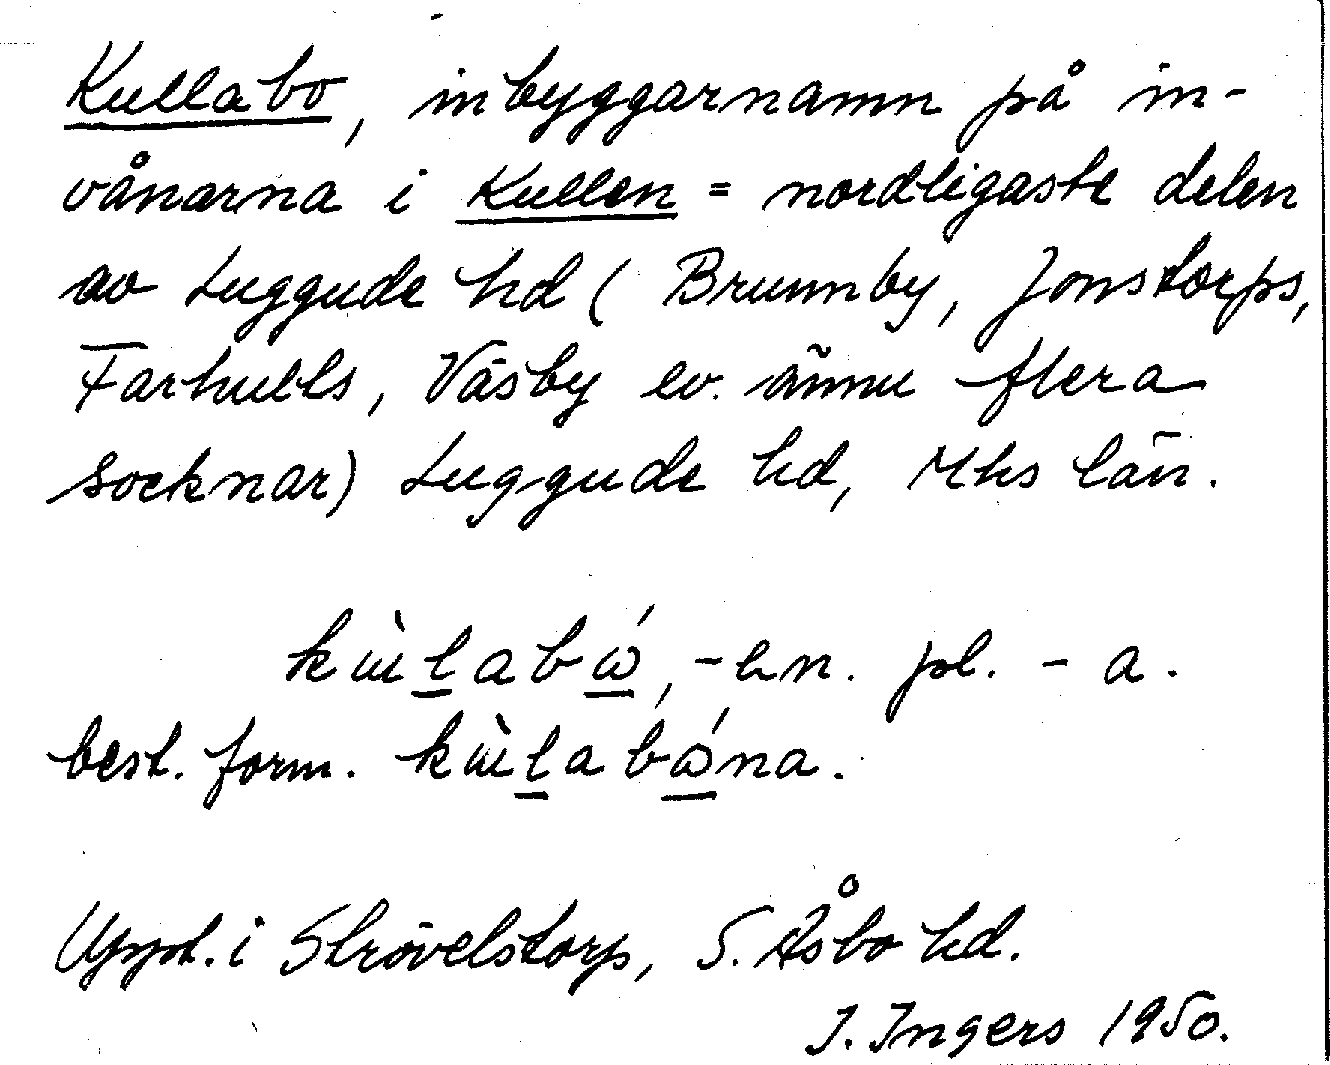 Kullabo, inbyggarnamn på in-
vånarna i Kullen = nordligaste delen
av Luggude hd (Brunnby, Jonstorps,
Farhults, Väsby ev. ännu flera
socknar) Luggude hd, Mhs län.
kùlabó, -en. pl. -a.
best. form. kùlabóna.
Uppt. i Strövelstorp, S. Åsbo hd.
I. Ingers 1950.